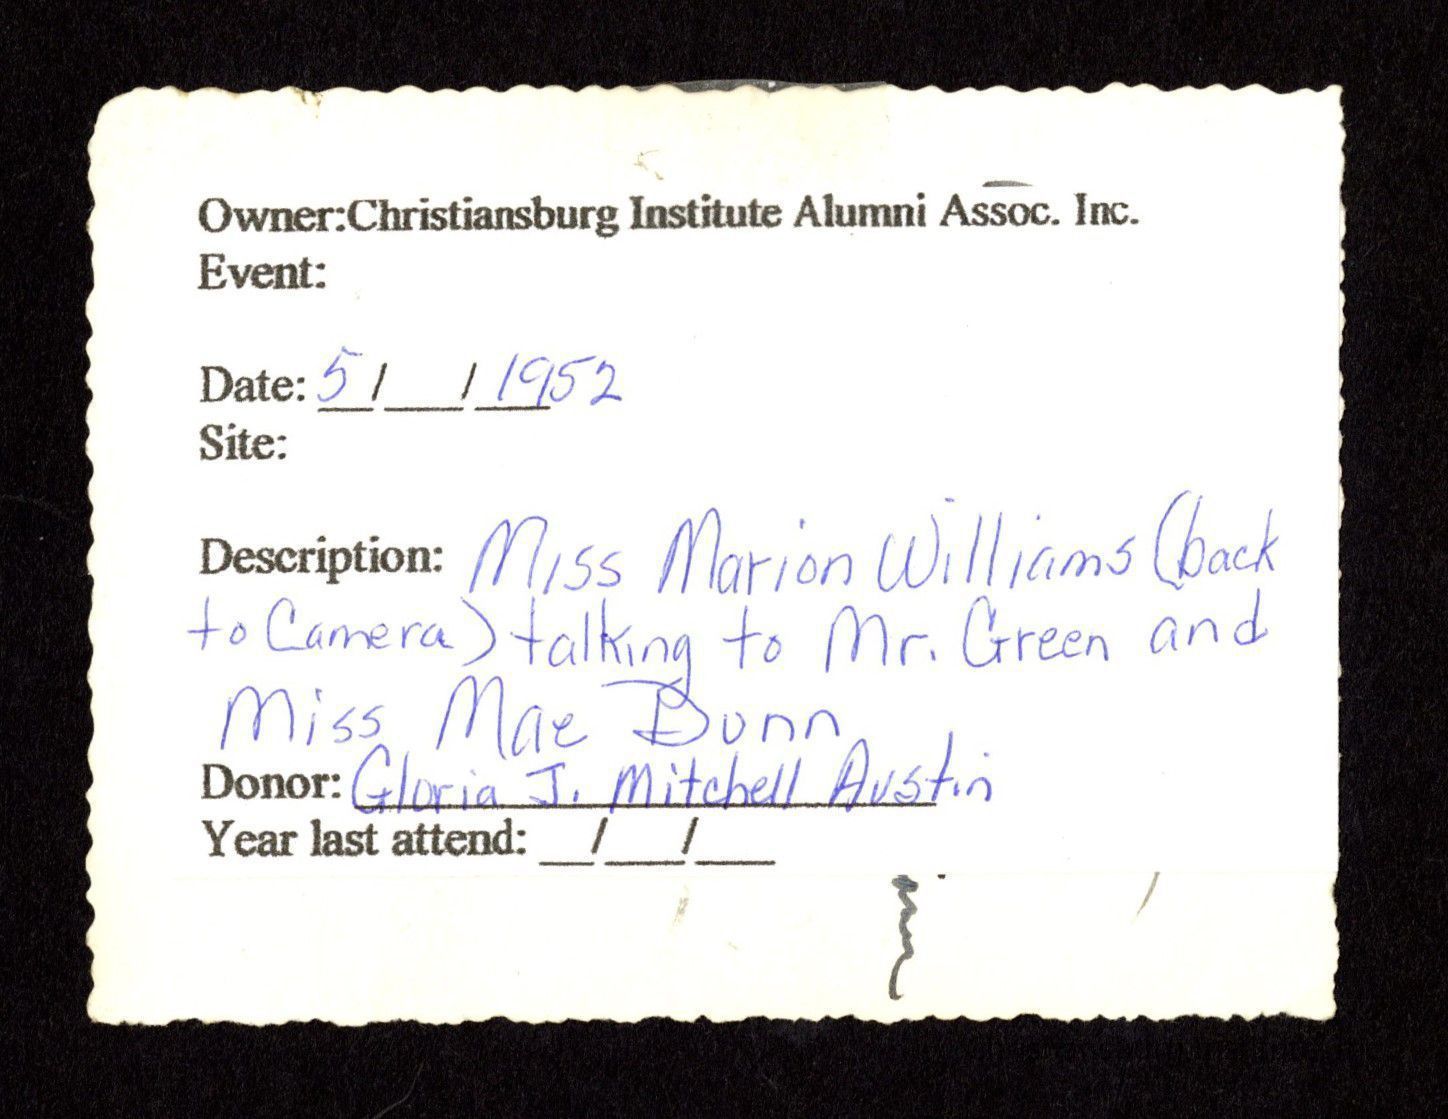 Owner:Christiansburg Institute Alumni Assoc. Inc.
Event:
Date: 5/__/1952
Site:
Description: Miss Marion Williams (back
to Camera) talking to Mr. Green and
Miss Mae Dunn
Donor: Gloria J. Mitchell Austin
Year last attend: __/__/__